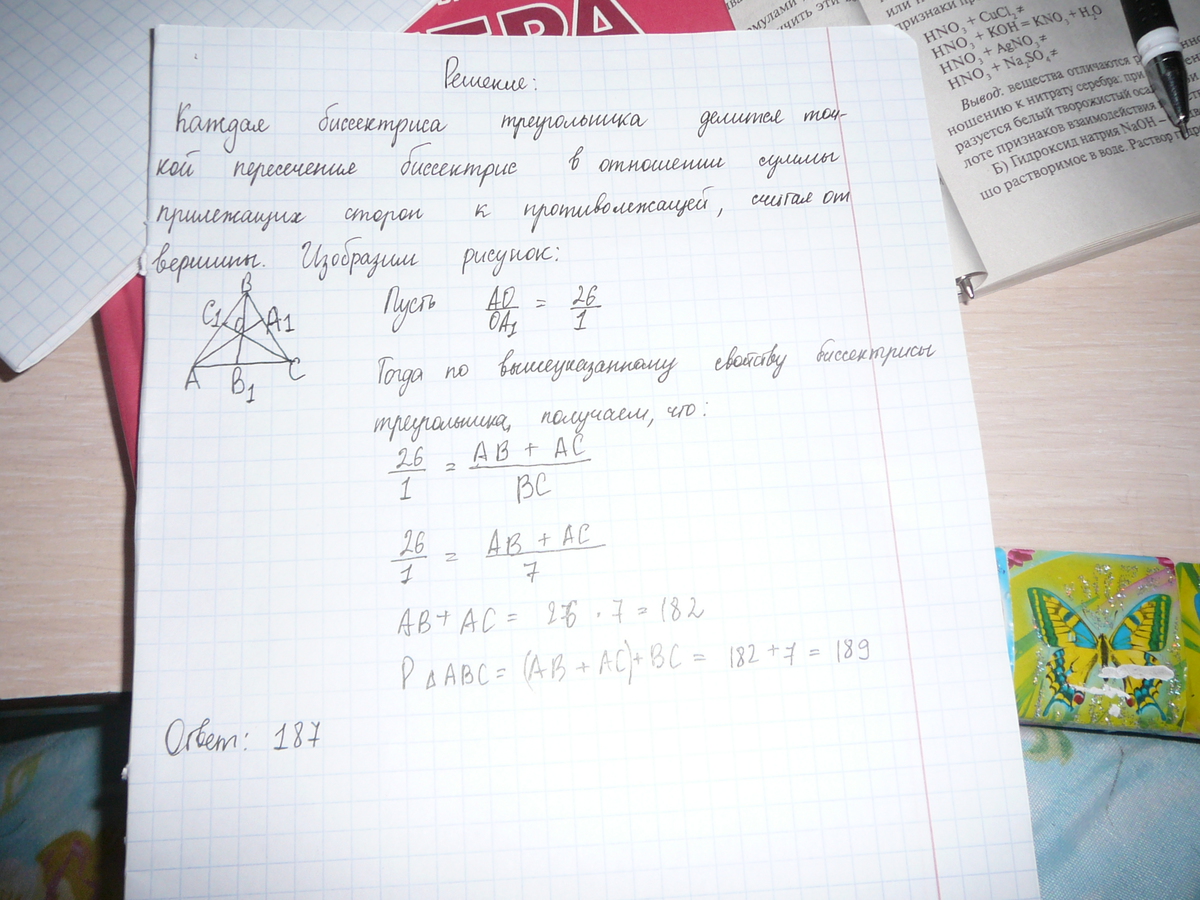 ЕРА
Решение:
Каждая биссектриса треугольника делится точ-
кой пересечение биссектрис в отношении суммы
прилежащих сторон к противолежащей, считая от
вершины. Изобразим рисунок:
B
C1 O A1
A B1 C
Пусть AO/OA1 = 26/1
Тогда по вышеуказанному свойству биссектрисы
треугольника, получаем, что:
26/1 = AB + AC/BC
26/1 = AB + AC/7
AB + AC = 26 · 7 = 182
P △ ABC = (AB + AC) + BC = 182 + 7 = 189
Ответ: 187
HNO3 + CuCl2 ≠
HNO3 + KOH = KNO3 + H2O
HNO3 + AgNO3 ≠
HNO3 + Na2SO4 ≠
Вывод: вещества отличаются
ношению к нитрату серебра: при
разуется белый творожистый
лоте признаков взаимодействия
Б) Гидроксид натрия NaOH –
шо растворимое в воде. Раствор